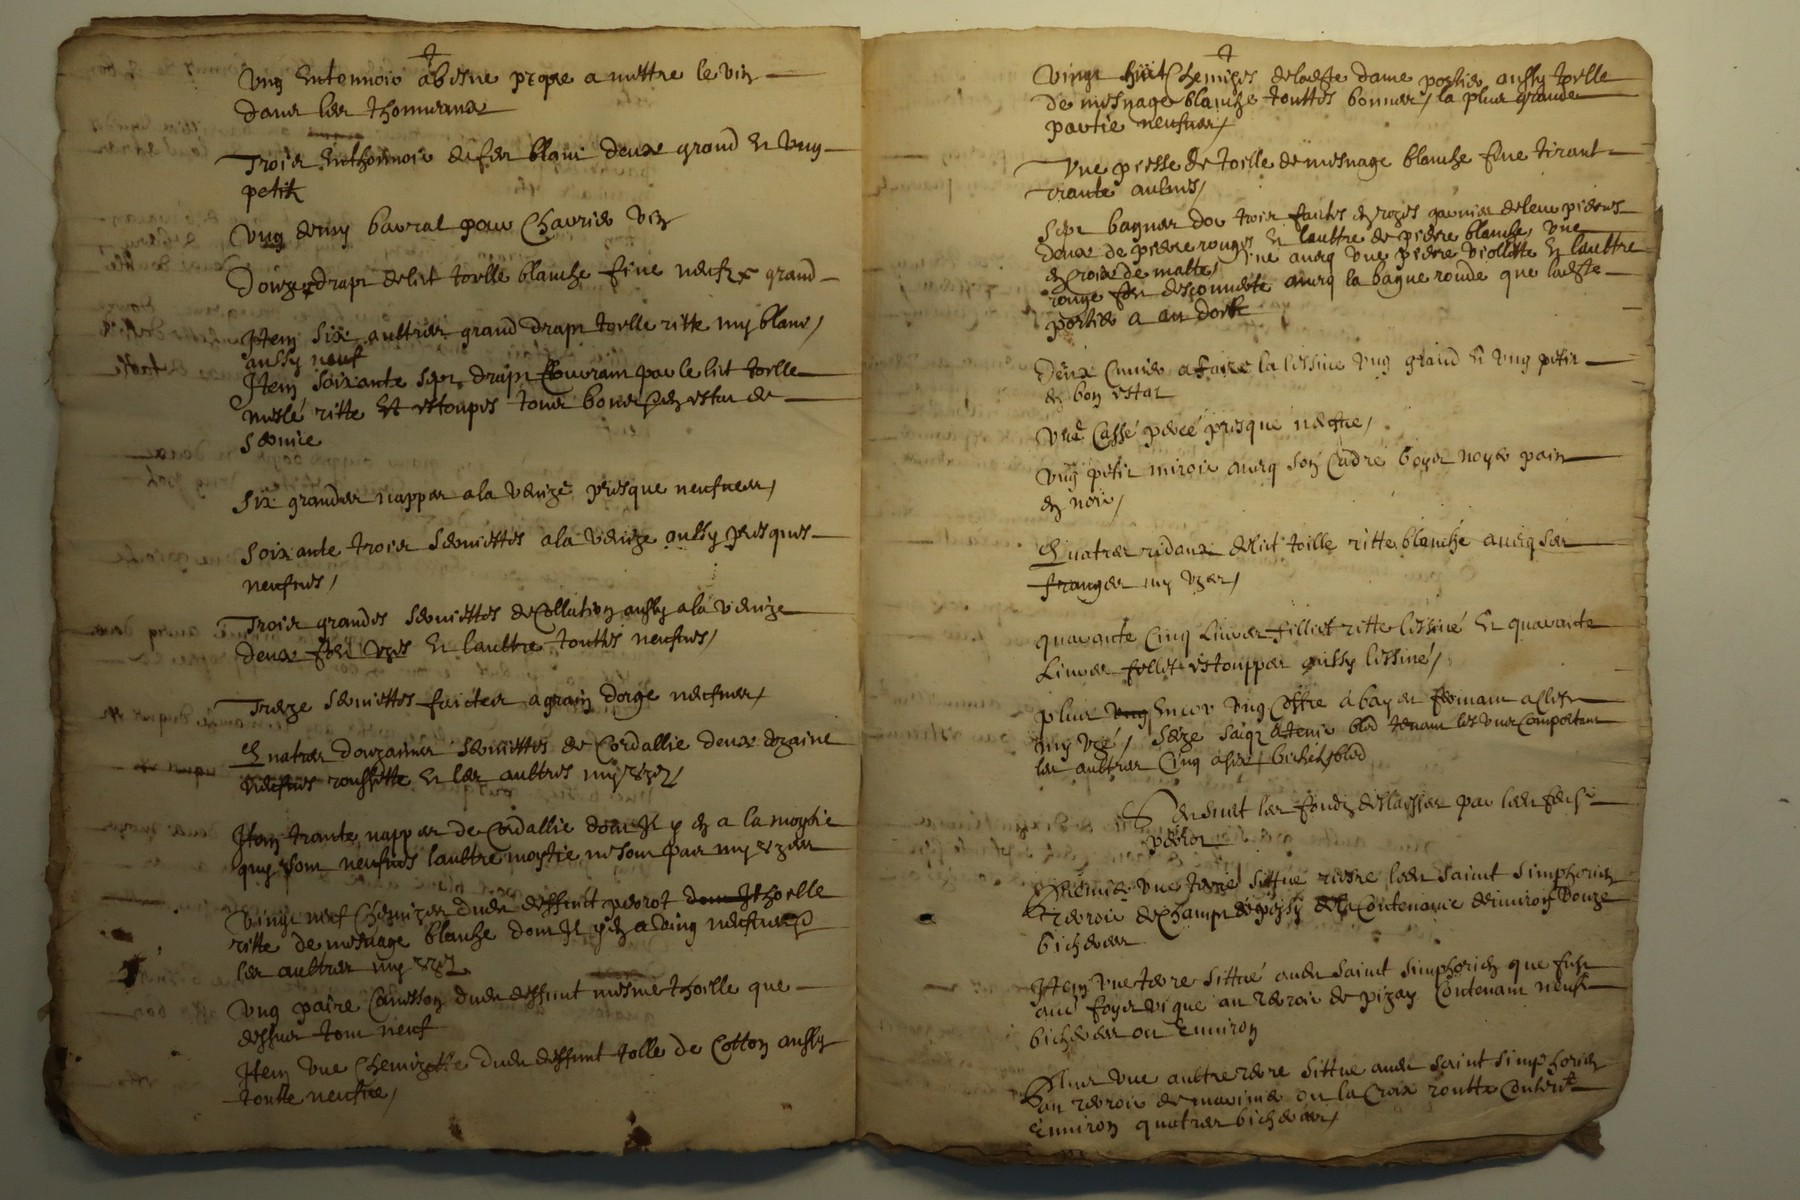 Ung entonnoir abesne propre a mettre le vin
dans les thonneaux
Trois enthonnoir de fer blanc deux grand et ung
petit
Ung demy barral pour charrier vin
Douze drapt de lict toille blanche fine neufz grand
Item six aultres grand drapt toille ritte my blanc /
aussy neuf
Item soixante sept drapt couvrant par le lict toille
meslé ritte et estoupes tous bons en estat de
servire
Six grandes nappes a la venize presque neufves /
Soixante trois serviettes a la venize aussy presques
neufves /
Trois grandes serviettes de collation aussy a la venize
deux fort uzes et laultre touttes neufves /
Treze serviettes faictes a grain dorge neufves /
Quatres douzaines serviettes de Cordallie deux dozaine
neufves roussette et les aultres my uzez /
Item trante nappes de Cordallie dont Il y en a la moytie
quy sont neufves laultre moytie ne sont pas my uzees
Vingt neuf Chemizes dudt deffunt perrot thoille
ritte de mesnage blanche dont Il y en a Cinq neufves
les aultres my uzez
Ung paire Canesson dudt deffunt mesme thoille que
dessus tout neuf
Item une Chemizette dudt deffunt tolle de Cotton aussy
toutte neufve /
Vingt huit Chemizes de ladte dame portier aussy toille
de mesnage blanche touttes bonnes / la plus grande
partie neufves /
Une piesse de toille de mesnage blanche fine tirant
trante aulnes /
Sept bagues dor trois faictes en rozes garnies de leur pierres
deux de pierre rouges et laultre de pierre blanche, une
en croix de malte / une avecq une pierre viollette et laultre
rouge avecq la bague ronde que ladte
portier a au doit
Deux Cuvier a faire la lissive ung grand et ung petit
en bon estat
Une Casse percé presque neufve /
Ung petit miroir avecq son Cadre boys noyer paint
en noir /
Quatres ridaux de lict toille ritte blanche avecq ses
franges my uzes /
quarante Cinq Livres fillet ritte lissivé et quarante
Livres fillet estouppes aussy lissivé /
plus encor ung Coffre abayer fermant a clef
my uzé / Seze saiqz a tenir bled tenant les unes comportant
les aultres Cinq bichetz bled
Sensuit les fondz delaisses par ledt feu sr
perrot
Premier une terre sittue riere ledt saint simphorien
terroir de Champt de la Contenance denviron Douze
bicherees
Item une terre sittué audt saint simphorien que fust
au terroir de pizay Contenant neuf
bicherees ou Environ
Plus une aultre terre sittue audt saint simphorien
au terroir de ou la Croix routte Content
Environ quatres bicherees /